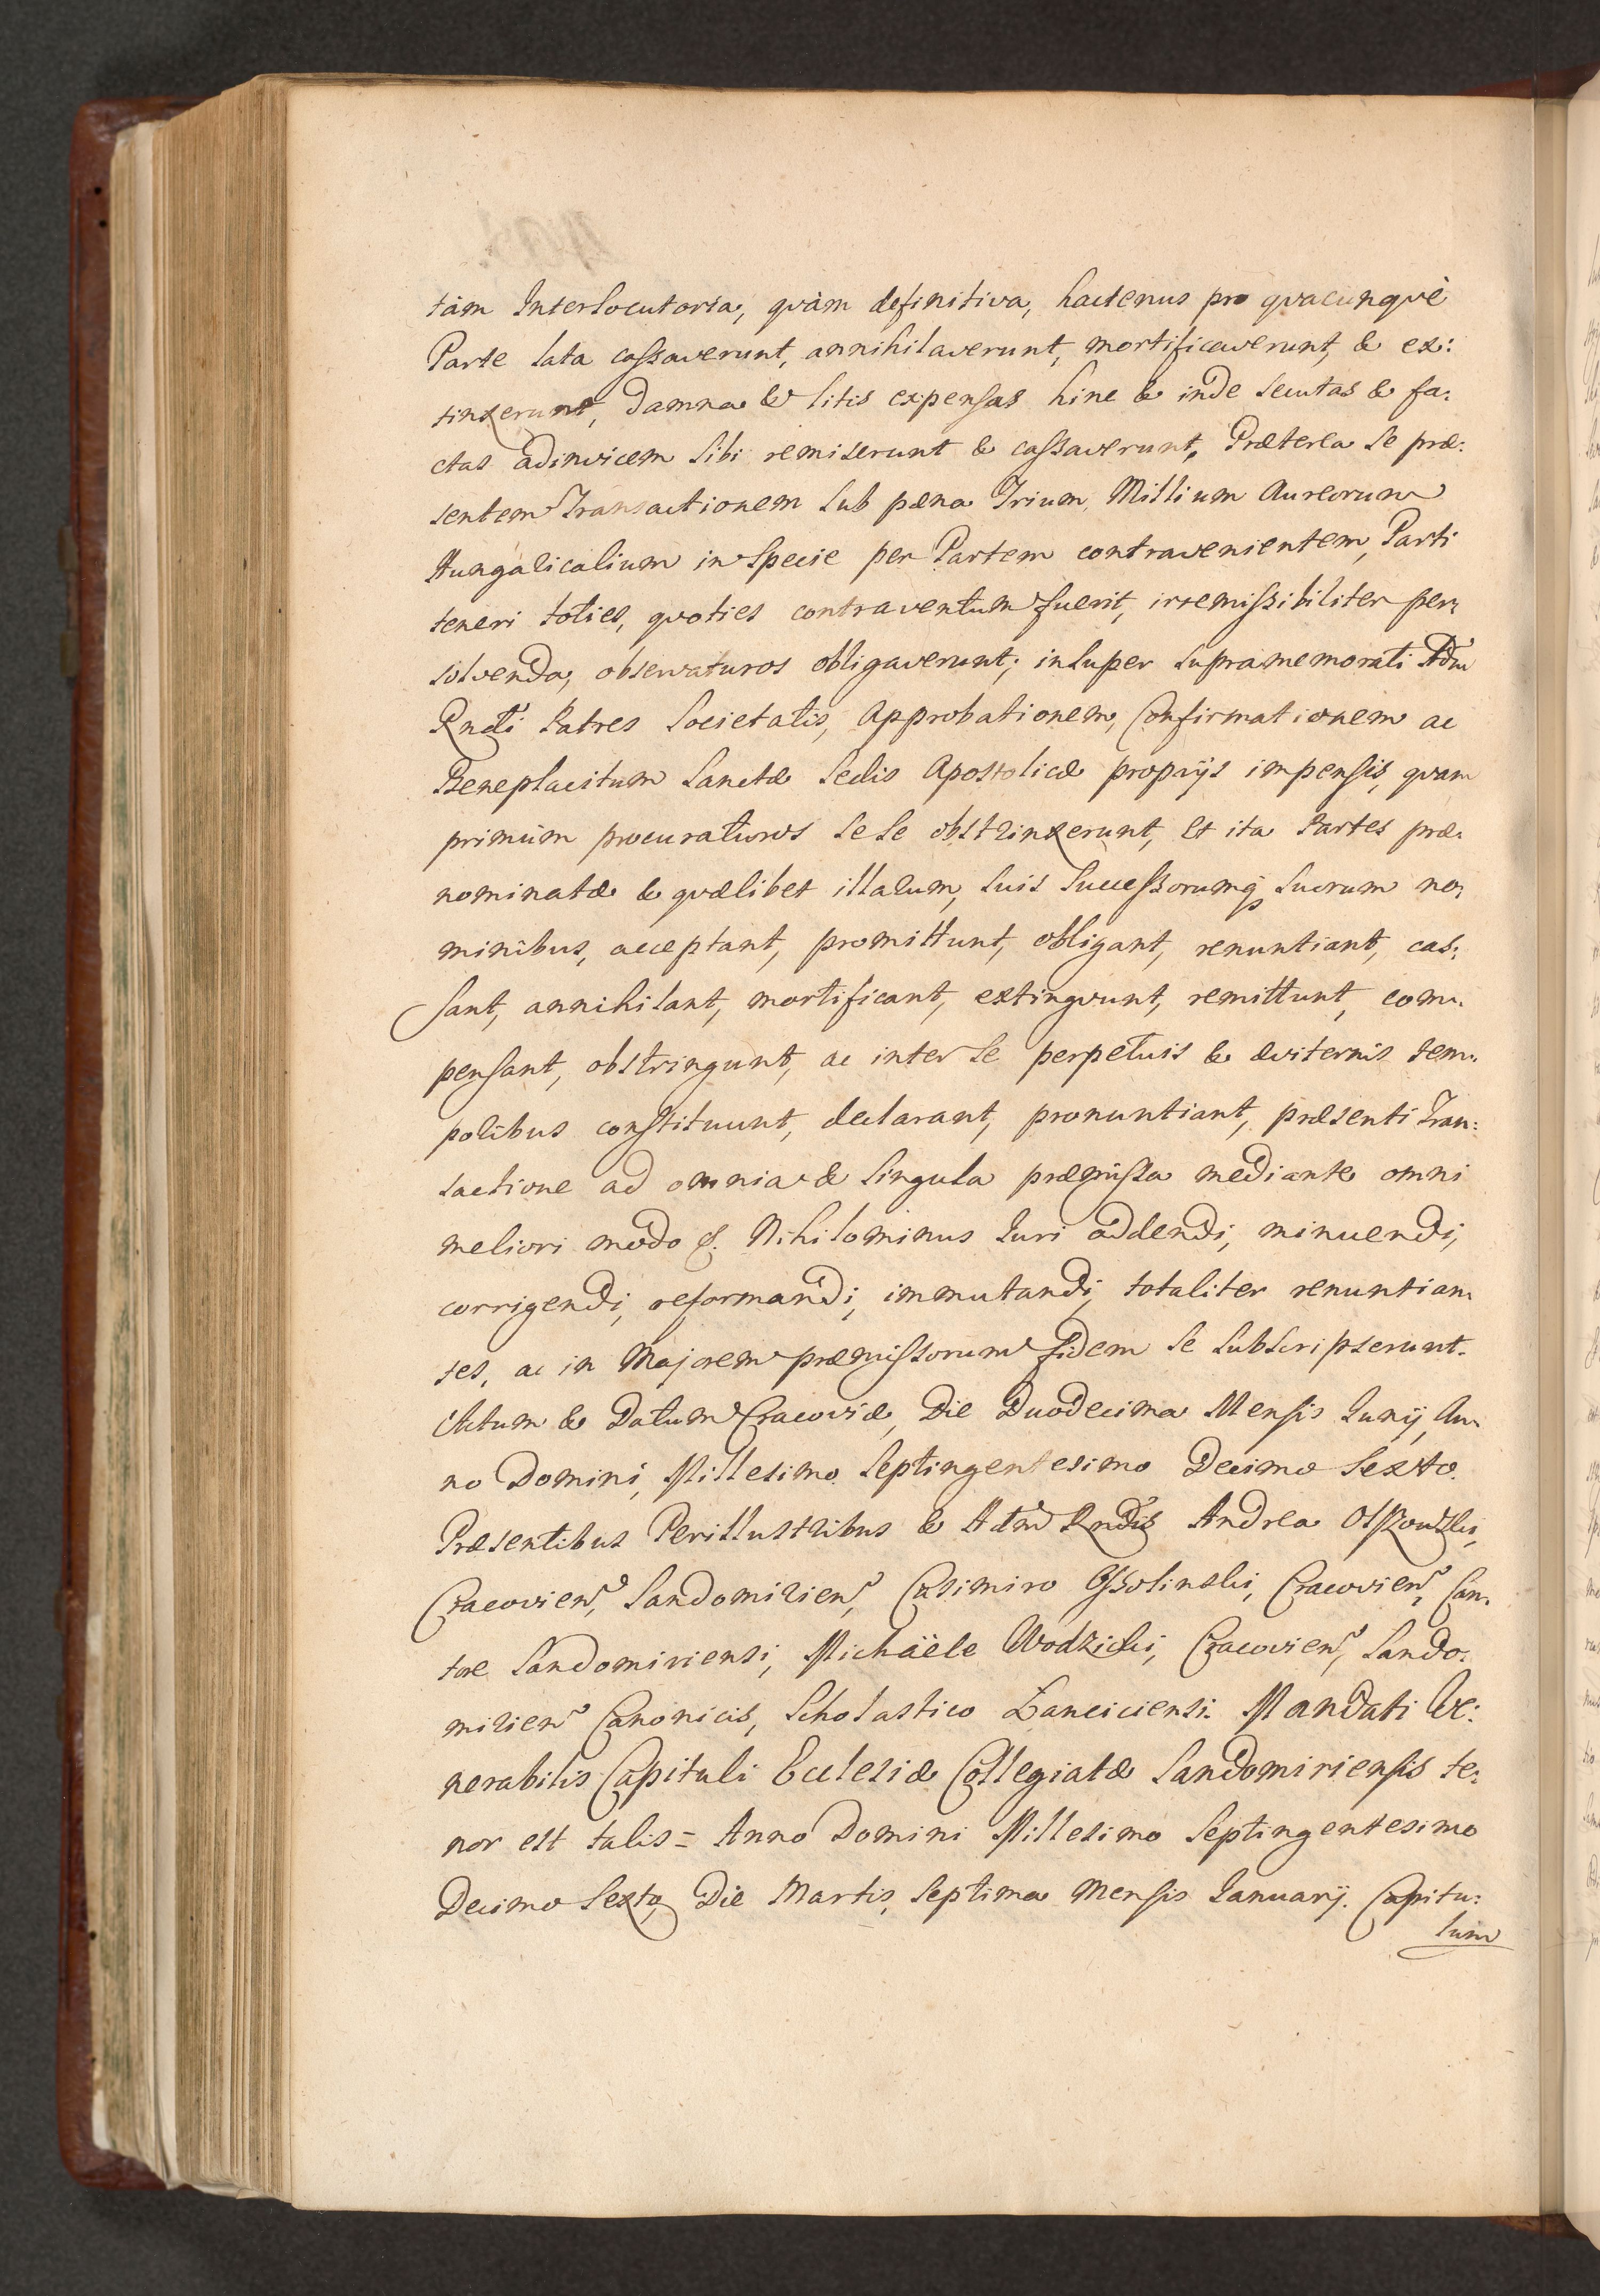 tàm Interlocutoria, qvàm definitiva, hactenus pro qvacunqvè
Parte lata cassaverunt, annihilaverunt, mortificaverunt, & ex:
tinxerunt, damna & litis expensas hinc & inde secutas & fa:
ctas adinvicem sibi remiserunt & cassaverunt, Præterea se præ:
sentem Transactionem sub pæna Trium Millium Aureorum
Hungalicalium in Specie per Partem contravenientem, Parti
teneri toties, qvoties contraventum fuerit, irremissibiliter per:
solvenda, observaturos obligaverunt; insuper supramemorati Adm
Rndi Patres Societatis, Approbationem, Confirmationem ac
Beneplacitum Sanctæ Sedis Apostolicæ proprijs impensis, qvam
primùm procuraturos sese obstrinxerunt, et ita Partes præ:
nominatæ & qvælibet illarum, suis Successorumq; suorum no:
minibus, acceptant, promittunt, obligant, renuntiant, cas:
sant, annihilant, mortificant, extingvunt, remittunt, com:
pensant, obstringunt, ac inter se perpetuis & æviternis tem:
poribus constituunt, declarant, pronuntiant, præsenti Tran:
sactione ad omnia & singula præmissa mediante omni
meliori modo &. Nihilominus Iuri addendi, minuendi,
corrigendi, reformandi, immutandi, totaliter renuntian:
tes, ac in Majorem præmissorum fidem se subscripserunt.
Actum & Datum Cracoviæ, Die Duodecima Mensis Iunij, An:
no Domini, Millesimo Septingentesimo Decimo Sexto.
Præsentibus Perillustribus & Adm Rndis Andrea Olszowski,
Cracovien, Sandomirien, Casimiro Ossolinski, Cracovien, Can:
tore Sandomiriensi, Michäele Wodzicki, Cracovien, Sando:
mirien Canonicis, Scholastico Lanciciensi. Mandati Ve:
nerabilis Capituli Ecclesiæ Collegiatæ Sandomiriensis te:
nor est talis = Anno Domini Millesimo Septingentesimo
Decimo Sexto, Die Martis, Septima Mensis Ianuarij. Capitu:
lum